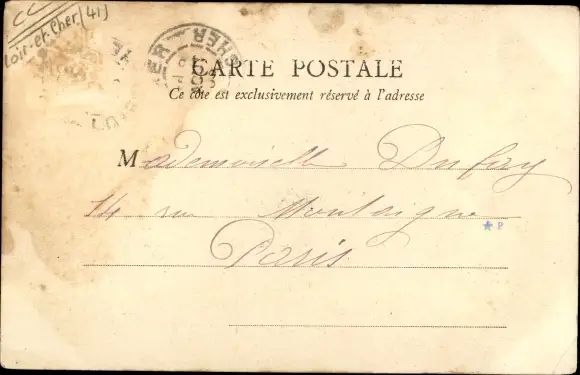 CC
Loir-et-Cher (41)
CHER
CARTE POSTALE
Ce côté est exclusivement réservé à l'adresse
Mademoiselle Dufay
14 rue Montaigne
P
Paris